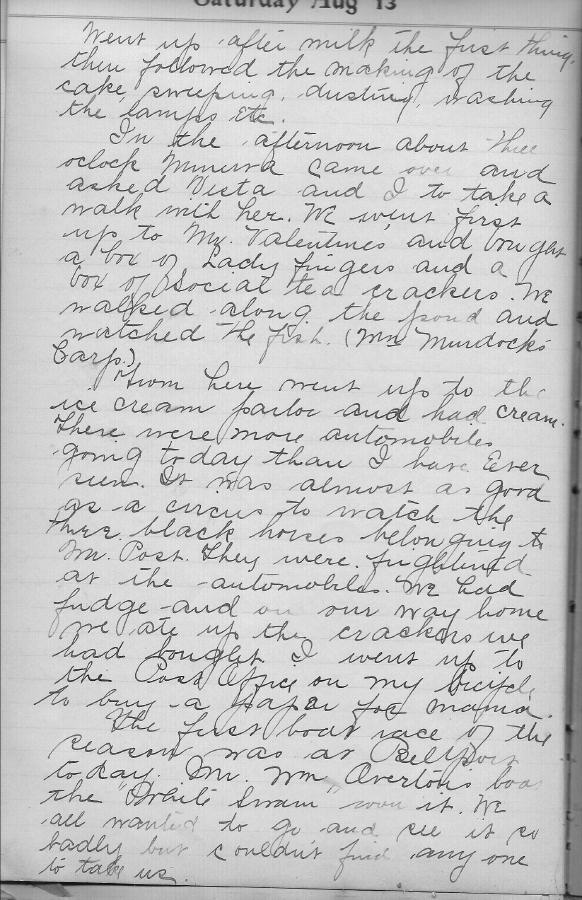 Saturday Aug 13
Went up after milk the first thing,
then followed the making of the
cake, sweeping, dusting, washing
the lamps Etc.
In the afternoon about three
oclock Minerva came over and
asked Vista and I to take a
walk with her. We went first
up to Mr. Valentines and bought
a box of Lady fingers and a
box of Social tea crackers. We
walked along the pond and
watched the fish. (Mr. Murdock's
Carp.)
From here went up to the
ice cream parlor and had cream.
There were more automobiles
going today than I have Ever
seen. It was almost as good
as a circus to watch the
three black horses belonging to
Mr. Post. They were frightened
at the automobiles. We had
fudge and on our way home
we ate up the crackers we
had bought. I went up to
the Post Office on my bicycle
to buy a paper for mama.
The first boat race of the
season was at Bellport
today. Mr. Wm. Overton's boat
the "White Swan" won it. We
all wanted to go and see it so
badly but couldn't find any one
to take us.